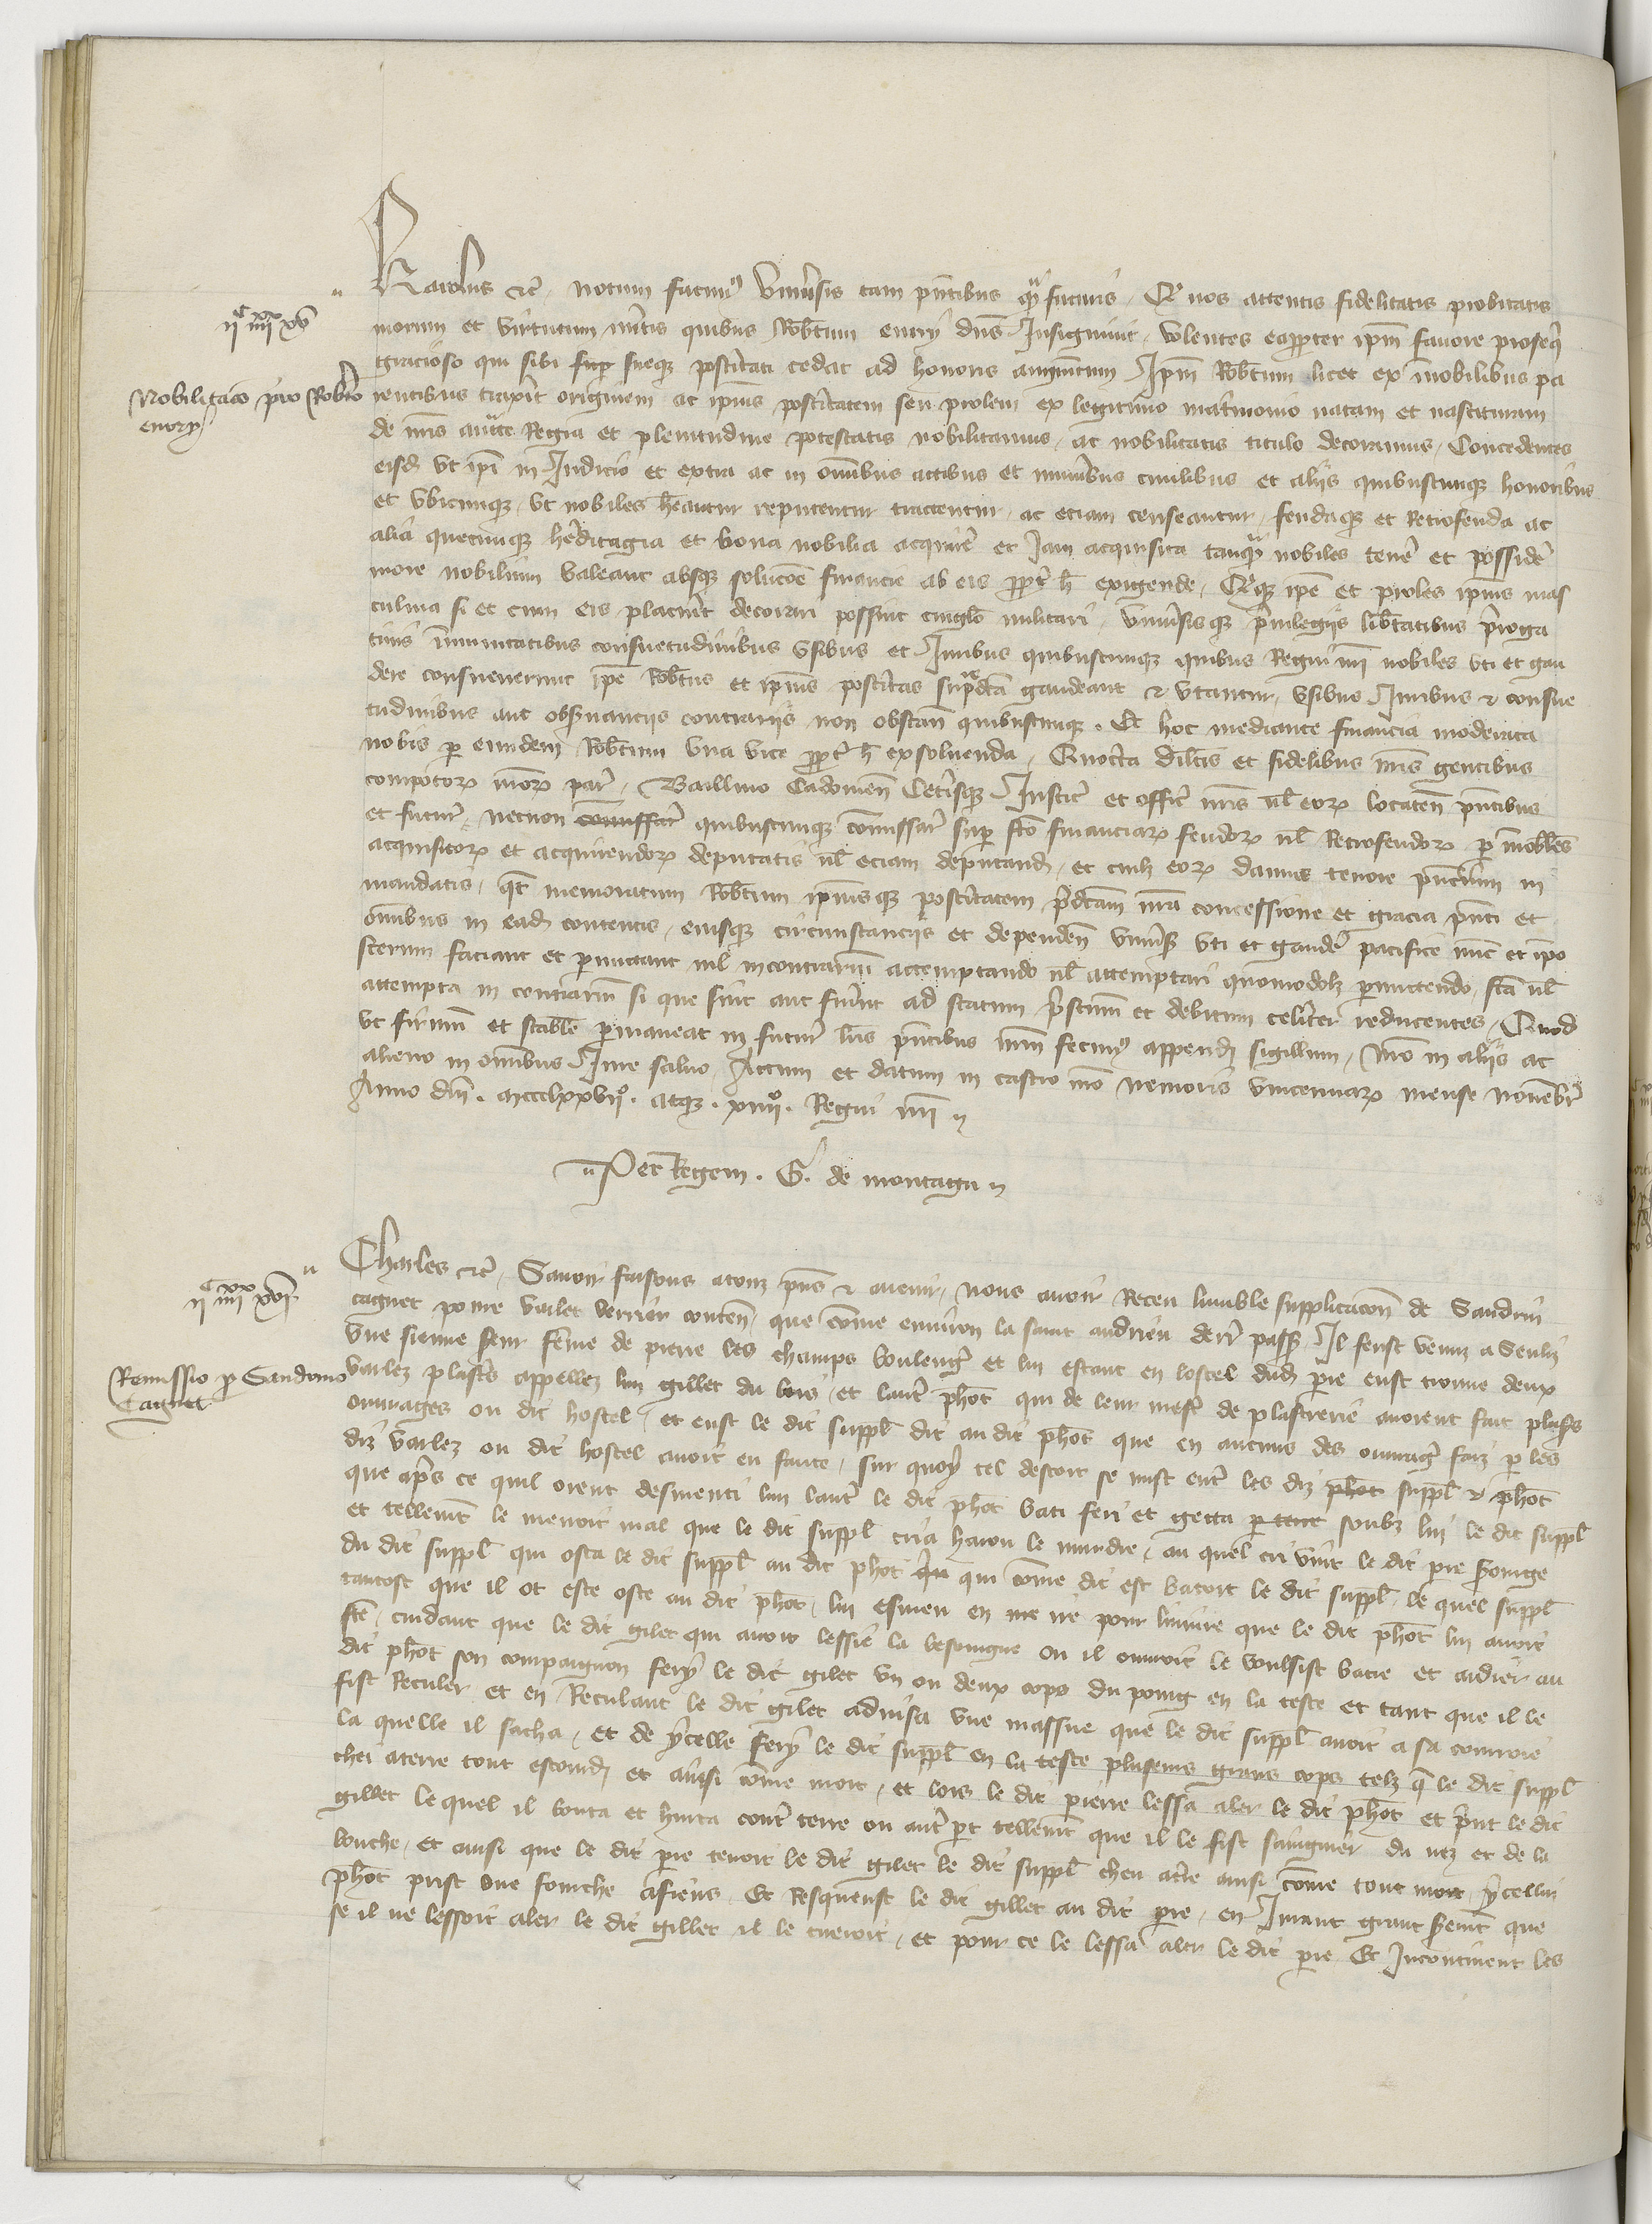 Karolus etc. notum facimus universis tam pntibus qm futuris. Qd nos attentis fidelitatis probitatis
ii^c iiii^xx xv
morum et virtutum mitis quibus Robtum emry dns Insignivit, volentes eapropter ipm favore prosequi
gracioso qui sibi sueque posteritati cedat ad honoris augmentum Ipm Robtum licet ex inobilibus pa
Nobilitacio pro Robto
emry
rentibus traxerit originem ac ipius posteritatem seu prolem ex legitimo matrimonio natam et nascituram
de nris auctte Regia et plenitudine potestatis nobilitamus, ac nobilitatis titulo decoramus, Concedentes
eisd ut ipi in Judicio et extra ac in omibus actibus et muneribus civilibus et aliis quibuscunque honoribus
et ubicunque, ut nobiles heantur reputentur tractentur, ac eciam censeantur, feudaque et Retrofeuda ac
alia quecunque hereditagia et bona nobilia acquirere et Jam acquisita tanqm nobiles tenere et possidere
more nobilium valeant absque solucoe financie ab eis propter h exigende, Qdque ipe et proles ipius mas
culina si et cum eis placuerit decorari possint cinglo militari, universisque privilegiis libtatibus preroga
tivis imunitatibus consuetudinibus usibus et Juribus quibuscunque quibus Regni nri nobiles uti et gau
dere consueverunt ipe Robtus et ipius posteritas supradcta gaudeant et utantur, usibus Juribus et consue
tudinibus aut observanciis contrariis non obstan quibuscunque. Et hoc mediante financia moderata
nobis per eundem Robtum una vice propter h exsolvenda, Quocirca dilctis et fidelibus nris gentibus
compotor nror par, Baillivo Cadomen Ceterisque Justic et offic nris vl eor locaten pntibus
et futur, necnon comissar quibuscunque comissar sup fco financiar feudor vl Retrofeudor p inobiles
acquisitor et acquirendor deputatis vl eciam deputand, et cuilz eor damus tenore pncium in
mandatis, qt memoratum Robtum ipiusque posteritatem pdctam nra concessione et gracia pnti et
omibus in ead contentis, eiusque circunstanciis et dependen universis uti et gaudere pacifice nunc et ipo
sterum faciant et permittant nil incontrarium attemptando vl attemptari quomodolz permittendo, fca vl
attempta in contrarium si que sint aut fuerint ad statum pristinum et debitum celeriter reducentes, Quod
ut firmum et stabile permaneat in futur lris pntibus nrum fecimus append sigillum, nro in aliis ac
alieno in omibus Jure salvo, Actum et datum in castro nro nemoris vincennar mense novembr
Anno dni. mccclxxvii°. atque. xiiii°. Regni nri
Per Regem. G. de montagu
Charles etc. Savoir faisons atouz pns et avenir, nous avoir Receu lumble supplicacion de Sandrin
ii^c iiii^xx xvi
cagnet povre varlet verrier conten, que come environ la saint andrieu derr passe Il feust venuz a Senliz
une sienne seur feme de pierre les champs boulengr et lui estant en lostel dud pre eust trouve deux
Remissio p Sandrino
Cagnet
varlez plastrs appellez lun gillet du bois, et lautr phot qui de leur mestr de plastrerie avoient fait plusrs
ouvrages ou dit hostel, et eust le dit suppl dit au dit phot que en aucuns des ouvragr faiz p les
diz varlez ou dit hostel avoit eu faute, sur quoy tel descort se mist entr les diz phot suppl et phot
que aprs ce quil orent desmenti lun lautr le dit phot bati feri et getta p terre soubz lui le dit suppl
et tellemt le menoit mal que le dit suppl cria harou le murdre, au quel cri vint le dit pre serourge
du dit suppl qui osta le dit suppl au dit phot qui come dit est batoit le dit suppl, le quel suppl
tantost que il ot este oste au dit phot, lui esmeu en ire pour liniure que le dit phot lui avoit
fte, cuidant que le dit gilet qui avoit lessie la besoingne ou il ouvroit le voulsist batre et aidier au
dit phot son compaignon fery le dit gilet un ou deux cops du poing en la teste et tant que il le
fist Reculer et en Reculant le dit gilet advisa une massue que le dit suppl avoit a sa conroie
la quelle il sacha, et de ycelle fery le dit suppl en la teste plusieurs grans cops telz q le dit suppl
chei aterre tout estourd et ainsi come mort, et lors le dit pierre lessa aler le dit phot et print le dit
gillet lequel il bouta et hurta contr terre ou autr pt tellemt que il le fist saingnier du nez et de la
bouche, et ainsi que le dit pre tenoit le dit gilet le dit suppl cheu atre ainsi come tout mort, ycellui
phot prist une fourche afiens, Et Resqueust le dit gillet au dit pre, en Jurant grant seremt que
se il ne lessoit aler le dit gillet il le tueroit, et pour ce le lessa aler le dit pre Et Incontinent les